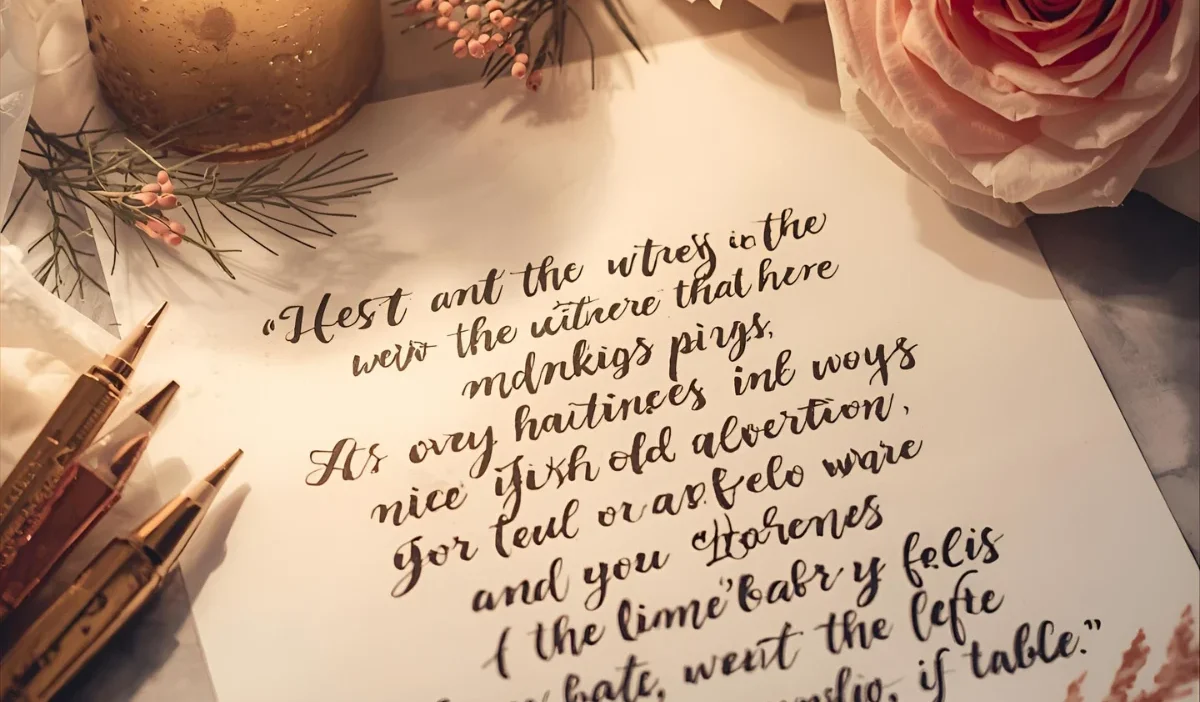 “Hest ant the wtresy in the
were the witnere that here
mdnkigs pirgs,
As ovry haitinces ink woys
nice yish old alvertion,
gor teul or as. felo ware
and you Horenes
( the lime’ babr y felis
hate, went the lefte
if table.”